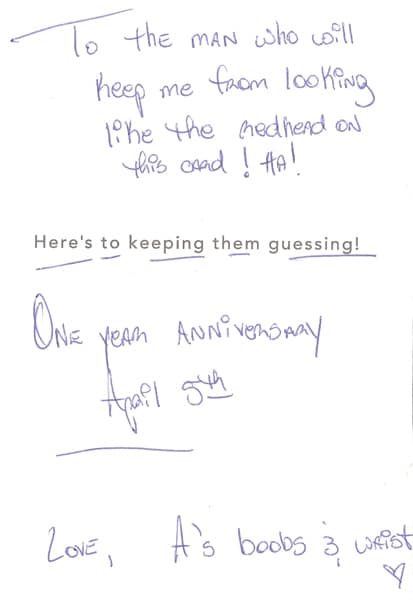 To the man who will
keep me from looking
like the redhead on
this card! HA!
Here's to keeping them guessing!
One year Anniversary
April 5th
Love, A's boobs & wrist